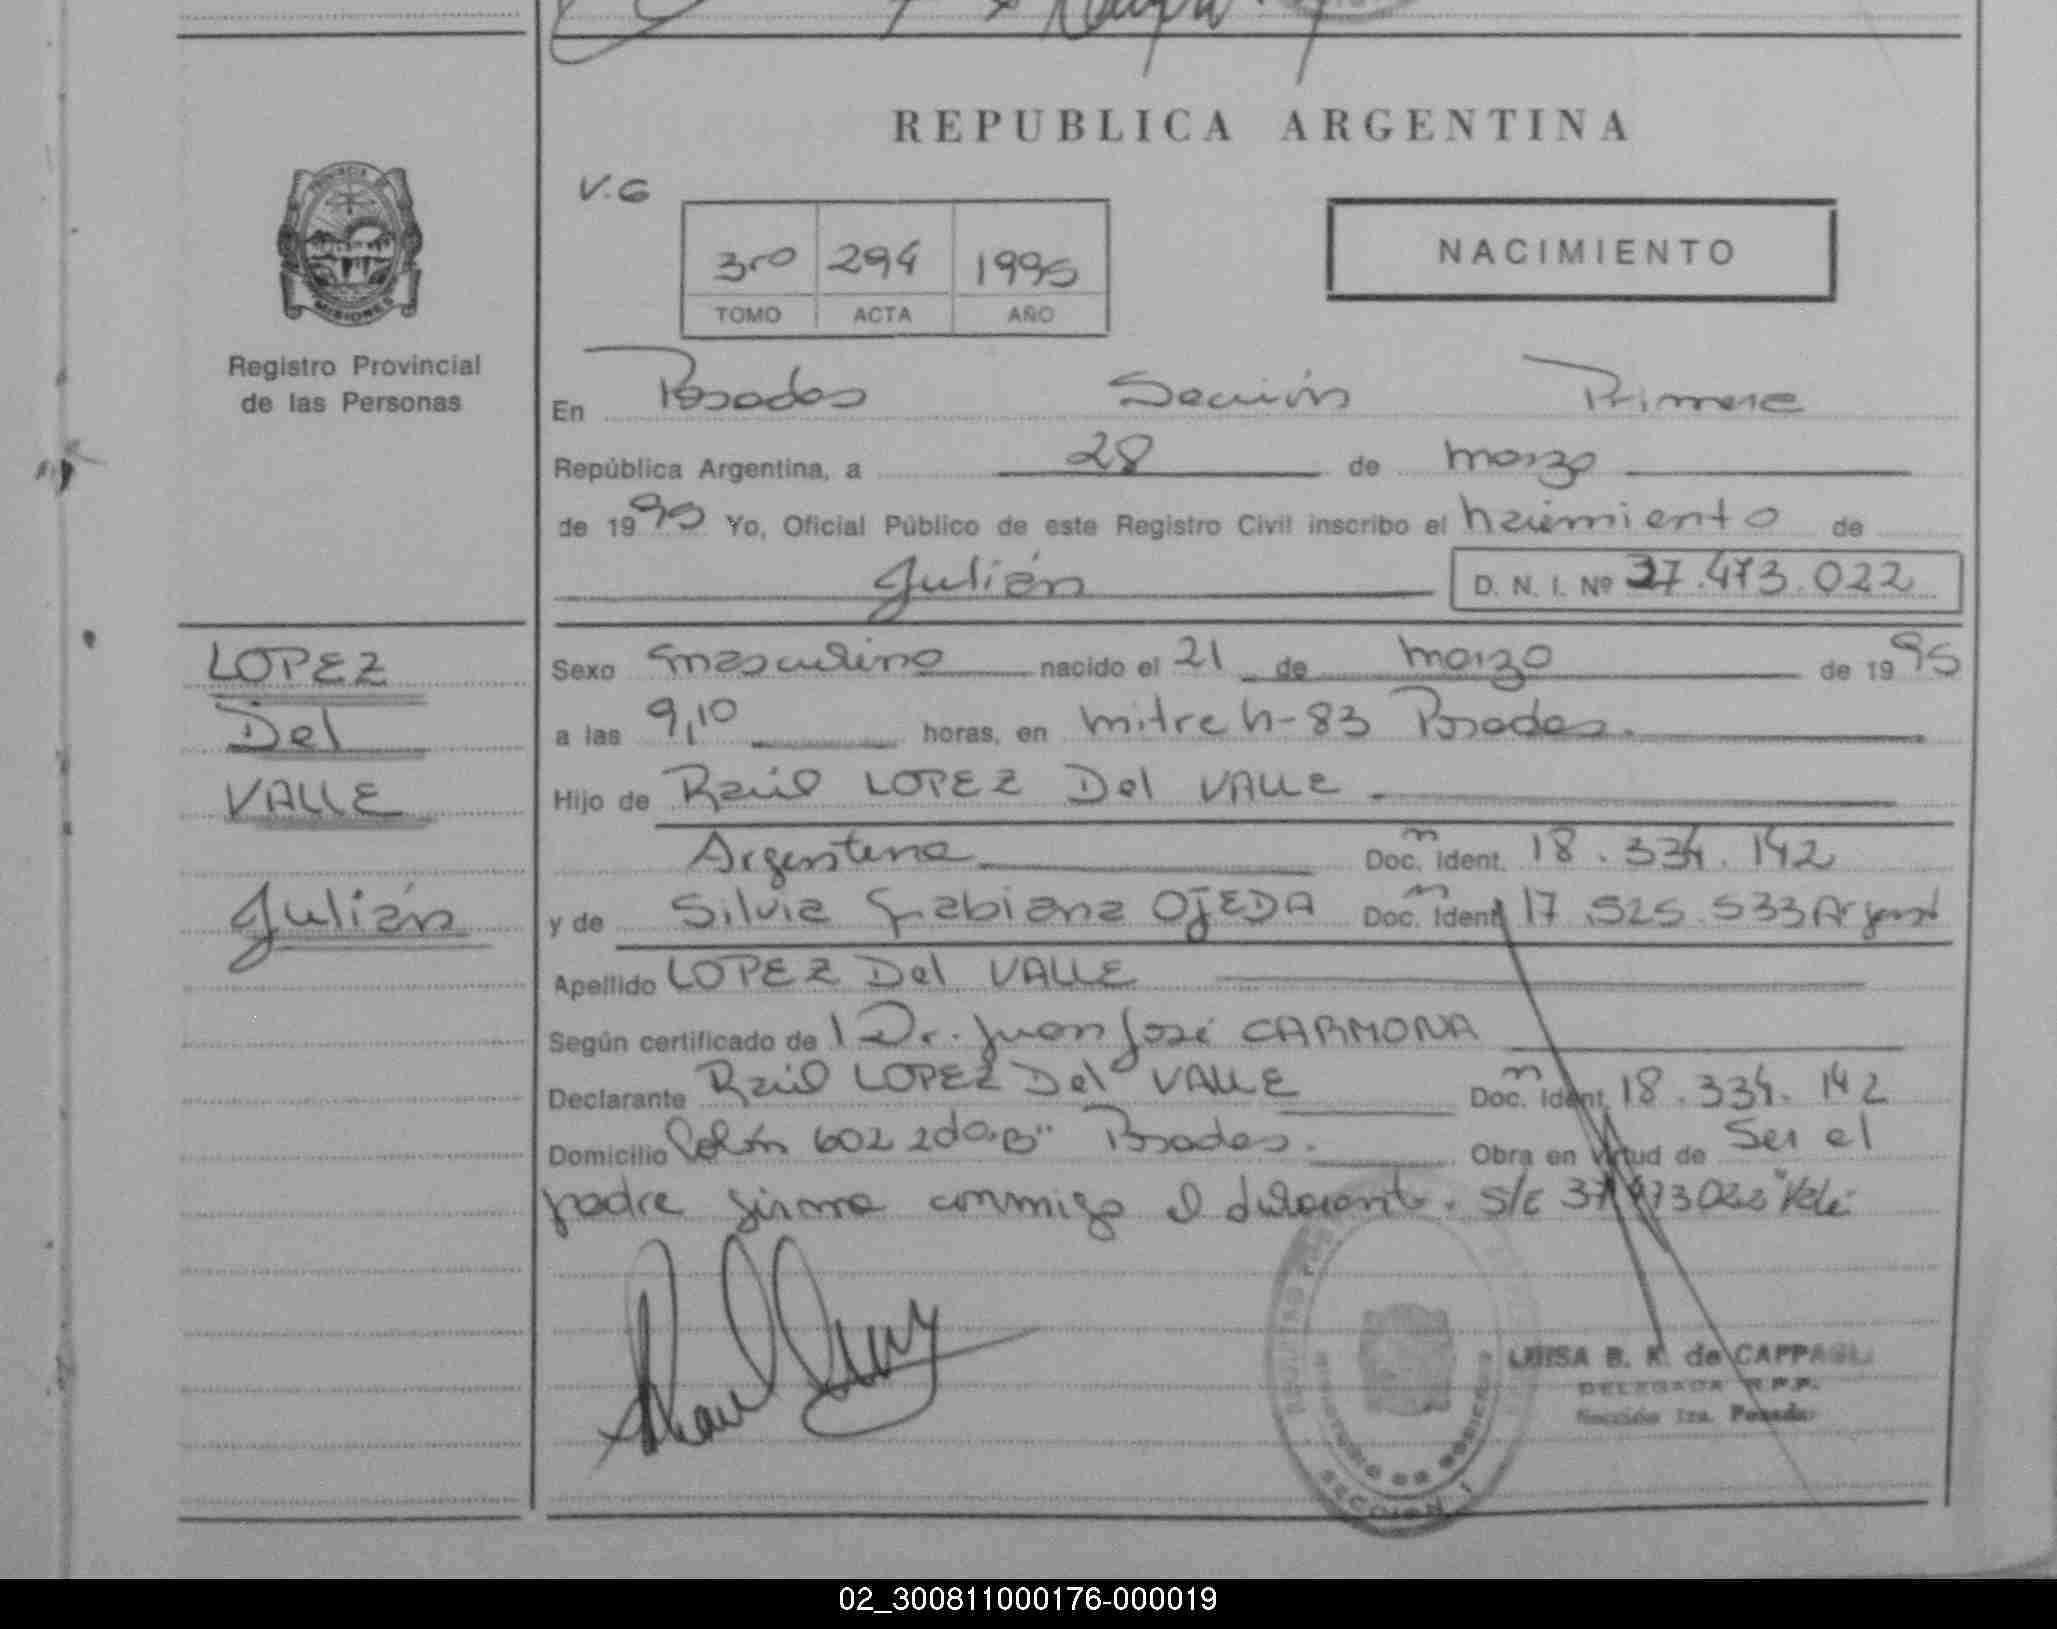 REPUBLICA ARGENTINA
PROVINCIA DE
MISIONES
Registro Provincial
de las Personas
V.G
3ro 294 1995
TOMO ACTA AÑO
NACIMIENTO
En Posadas Sección Primera
República Argentina, a 28 de marzo
de 1995 Yo, Oficial Público de este Registro Civil inscribo el nacimiento de
Julián D. N. I. Nº 37.473.022
LOPEZ
Del
VALLE
Julián
Sexo masculino nacido el 21 de marzo de 1995
a las 9,10 horas, en mitre n-83 Posadas.
Hijo de Raúl LOPEZ Del VALLE
Argentina Doc. Ident. 18.334.142
y de Silvia Fabiana OJEDA Doc. Ident 17.525.533 Argent
Apellido LOPEZ Del VALLE
Según certificado de l Dr. Juan José CARMONA
Declarante Raúl LOPEZ Del VALLE Doc. Ident. 18.334.142
Domicilio Colón 602 2do "B" Posadas. Obra en virtud de Ser el
padre firma conmigo el declarante. S/E 37473022 "Vale"
MINISTERIO DE GOBIERNO
SECCION 1
LUISA B. K. de CAPPAGLI
DELEGADA R.P.P.
Sección 1ra. Posadas
02_300811000176-000019